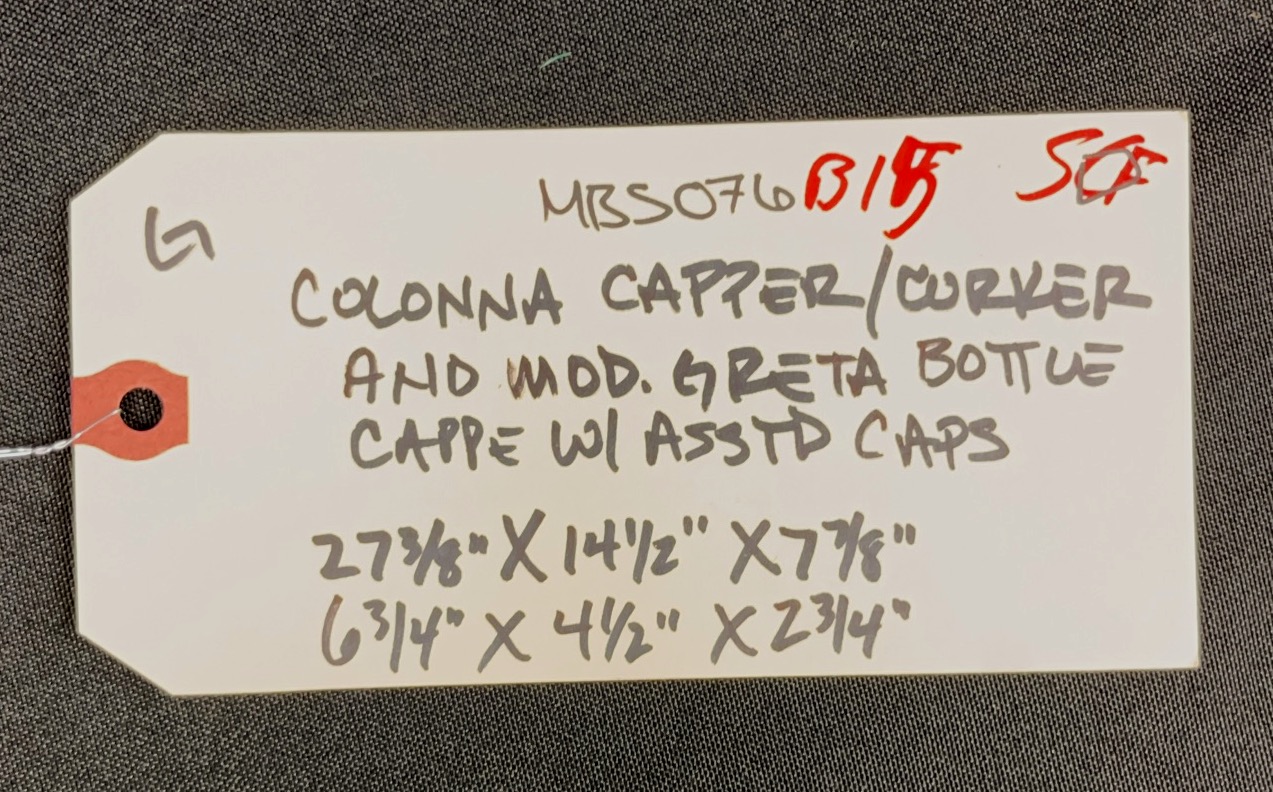 MBS076 B15
G
COLONNA CAPPER/CORKER
AND MOD. GRETA BOTTLE
CAPPE W/ ASSTD CAPS
27 3/8" X 14 1/2" X 7 7/8"
6 3/4" X 4 1/2" X 2 3/4"